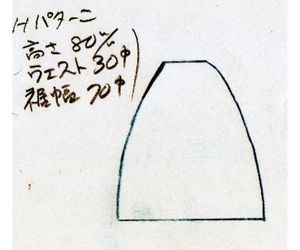 Hパターン
高さ 80%
ウエスト 30φ
裾幅 70φ